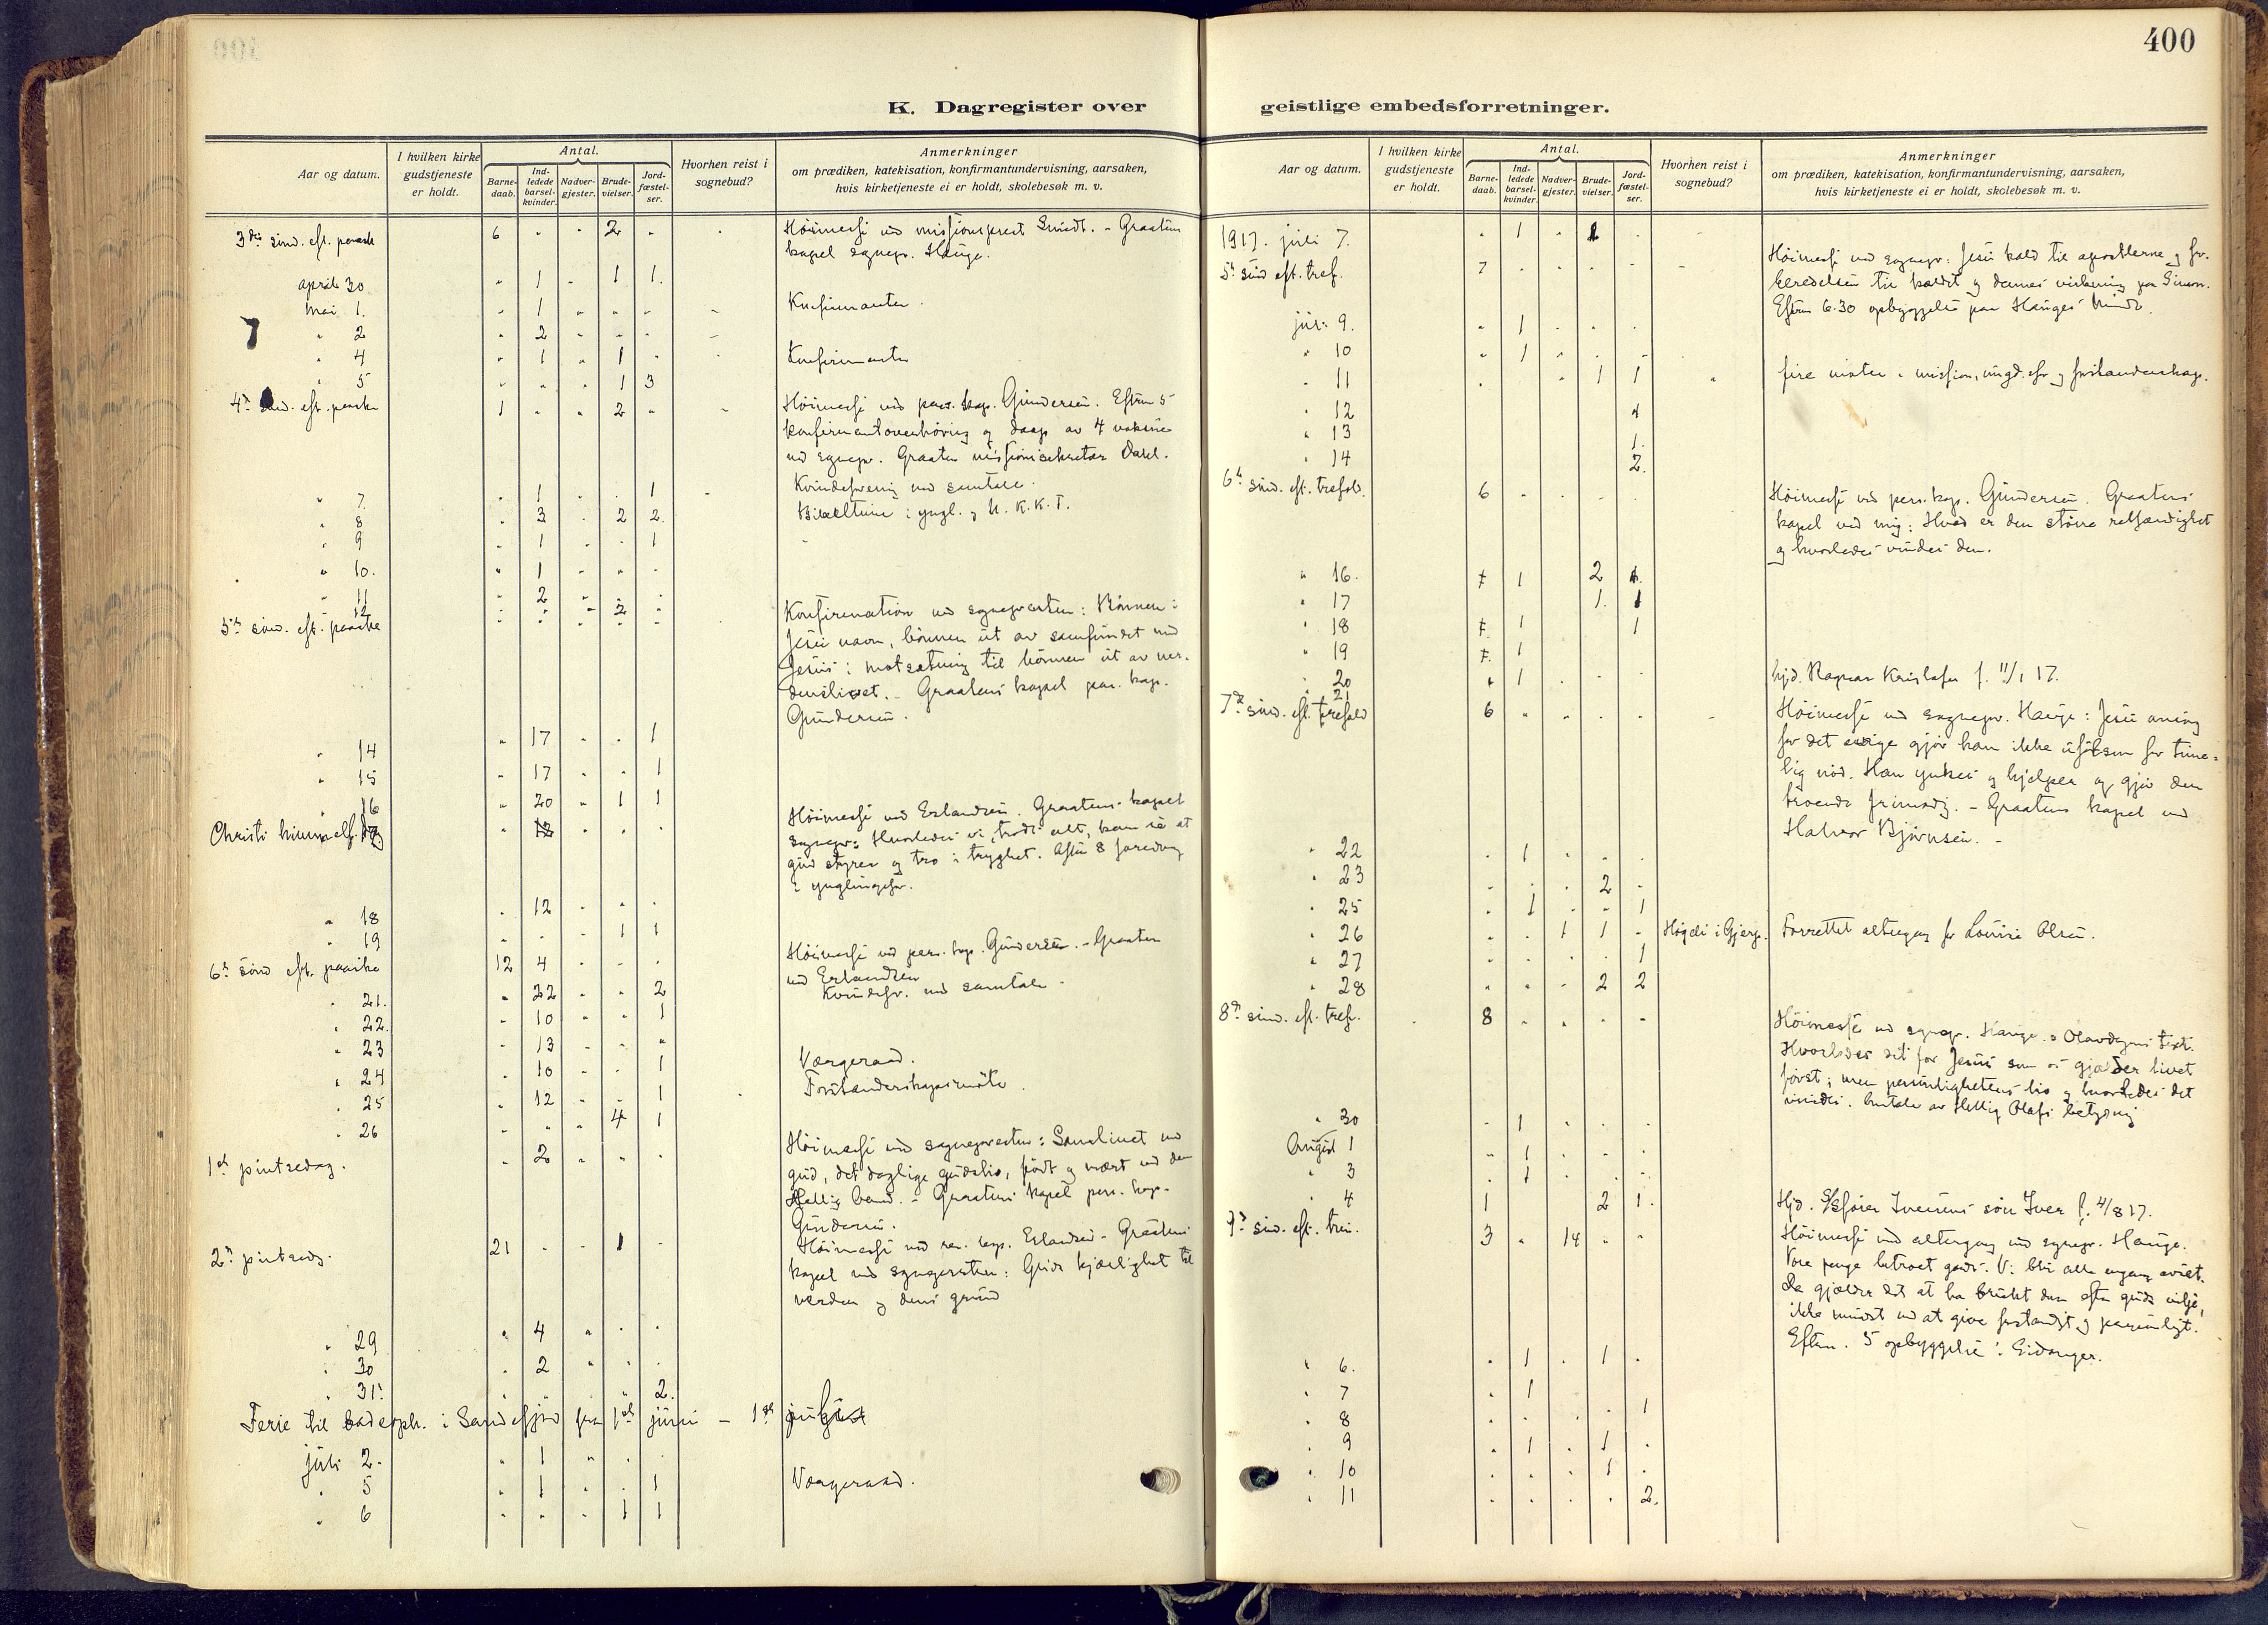 400
K. Dagregister over geistlige embedsforretninger.
Aar og datum.
I hvilken kirke gudstjeneste er holdt.
Antal.
Barnedaab.
Indledede barselkvinder.
Nadvergjester.
Brudevielser.
Jordfæstelser.
Hvorhen reist i sognebud?
Anmerkninger
om prædiken, katekisation, konfirmantundervisning, aarsaken,
hvis kirketjeneste ei er holdt, skolebesøk m. v.
3die sønd. eft. paaske 6 " " 2 " Høimesse ved missionsprest Smidt. - Graaten
kapel sognepr. Hauge.
april 30 " 1 " 1 1.
mai 1. " 1 " " " Konfirmanter.
" 2 " 2 " " "
" 4 " 1 " 1 " Konfirmanter
" 5 " " " 1 3
4de sønd. eft. paaske 1 " " 2 " Høimesse ved pers. kap. Gundersen. Efterm 5
konfirmantoverhøring og daap av 4 voksne
ved sognepr. Graaten missionssekretær Dahl.
" 7 " 1 " " 1 Kvindeforening med samtale.
" 8 " 3 " 2 2. Bibeltime i yngl. og U. K. K. F.
" 9 " 1 " " 1
" 10. " 1 " " "
" 11 " 2 " " "
12 " " " 2 "
5te sønd. eft. paaske Konfirmation ved sognepresten: Bønnen i
Jesu navn, bønnen ut av samfundet med
Jesus i motsætning til bønnen ut av ver-
denslivet. - Graatens kapel pers. kap.
Gundersen.
" 14 " 17 " " 1
" 15 " 17 " " 1
" 16 " 20 " 1 1
Christi himmelf. dag " " " " Høimesse ved Erlandsen. Graatens kapel
sognepr: Hvorledes vi, trods alt, kan se at
gud styrer og tro i tryghet. Aften 8 foredrag
i ynglingefor.
" 18 " 12 " " "
" 19 " " " 1 1
6te sønd eft. paaske 12 4 " " " Høimesse ved pers. kap. Gundersen. - Graaten
ved Erlandsen
" 21. " 22 " " 2 Kvindefor. med samtale.
" 22. " 10 " " 1
" 23 " 13 " " "
" 24 " 10 " " 1 Værgeraad.
" 25 " 12 " " 1 Forstanderskapsmøte.
" 26 " " " 4 1
1ste pintsedag. " 2 " " " Høimesse ved sognepresten: Samlivet med
gud, det daglige gudsliv, født og næret ved den
Hellig aand. - Graatens kapel pers. kap.
Gundersen.
2den pintsedg. 21 " " 1 " Høimesse ved res. kap. Erlandsen - Graatens
kapel ved sognepresten: Guds kjærlighet til
verden og dens grund
" 29 " 4 " " "
" 30 " 2 " " "
" 31. " " " " 2.
Ferie til badeoph. i Sandefjord fra 1ste juni - 1ste juli
juli 2. " 1 " " "
" 5 " 1 " " 1 Værgeraad.
" 6 " " " 1 1
Aar og datum.
I hvilken kirke gudstjeneste er holdt.
Antal.
Barnedaab.
Indledede barselkvinder.
Nadvergjester.
Brudevielser.
Jordfæstelser.
Hvorhen reist i sognebud?
Anmerkninger
om prædiken, katekisation, konfirmantundervisning, aarsaken,
hvis kirketjeneste ei er holdt, skolebesøk m. v.
1917. juli 7. " 1 " 1 "
5te sønd eft. tref. 7 " " " " Høimesse ved sognepr: Jesu kald til apostlerne og for-
beredelsen til kaldet og dennes virkning paa Simon.
Efterm 6.30 opbyggelse paa Hauges Minde.
juli 9. " 1 " " "
" 10 " 1 " " "
" 11 " " " 1 1 fire møter i mission, ungd. for og forstanderskap.
" 12
" 13 1.
" 14 2.
6te sønd. eft. trefold. 6 " " " " Høimesse ved pers. kap. Gundersen. Graatens
kapel ved mig: Hvad er den større retfærdighet
og hvorledes vindes den.
" 16. 1 2
" 17 1. 1
" 18 1 1
" 19 1
" 20 1 " " " hjd. Ragnar Kristofer f. 11/1 17.
21
7de sønd. eft. trefold 6 " " " " Høimesse ved sognepr. Hauge: Jesu ansing
for det evige gjør ham ikke ufølsom for time-
lig nød. Han ynkes og hjelper og gjør den
troende frimodig. - Graatens kapel ved
Halvor Bjørnsen. -
" 22 " 1 " " "
" 23 " " " 2 "
" 25 " 1 " " 1
" 26 " " 1 1 " Høgeli i Gjerp. Forrettet altergang for Lovise Olsen.
" 27 " " " " 1
" 28 " " " 2 2
8de sønd. eft. tref. 8 " " " " Høimesse ved sognepr. Hauge. Olavdagens text.
Hvorledes det for Jesus som os gjælder livet
først; men personlighetens liv og hvorledes det
vindes. Omtale av Hellig Olafs betydning
" 30 " 1 " " "
August 1 " 1 " " "
" 3 " 1 " " "
" 4 1 2 1. Hjd. Iversens søn Iver f. 4/8 17.
9de sønd. eft. tref. 3 " 14 " " Høimesse med altergang ved sognepr. Hauge.
Vore penge betroet gods. Vi blir alle engang avsat.
Da gjælder det at ha brukt dem efter guds vilje,
ikke mindst ved at give forstandigt og personligt.
Efterm. 5 opbyggelse i Eidanger.
" 6. " 1 " 1 "
" 7 " 1
" 8 " " " " 1
" 9 " 1 " 1 "
" 10 " " " 1 "
" 11 " " " " 2.